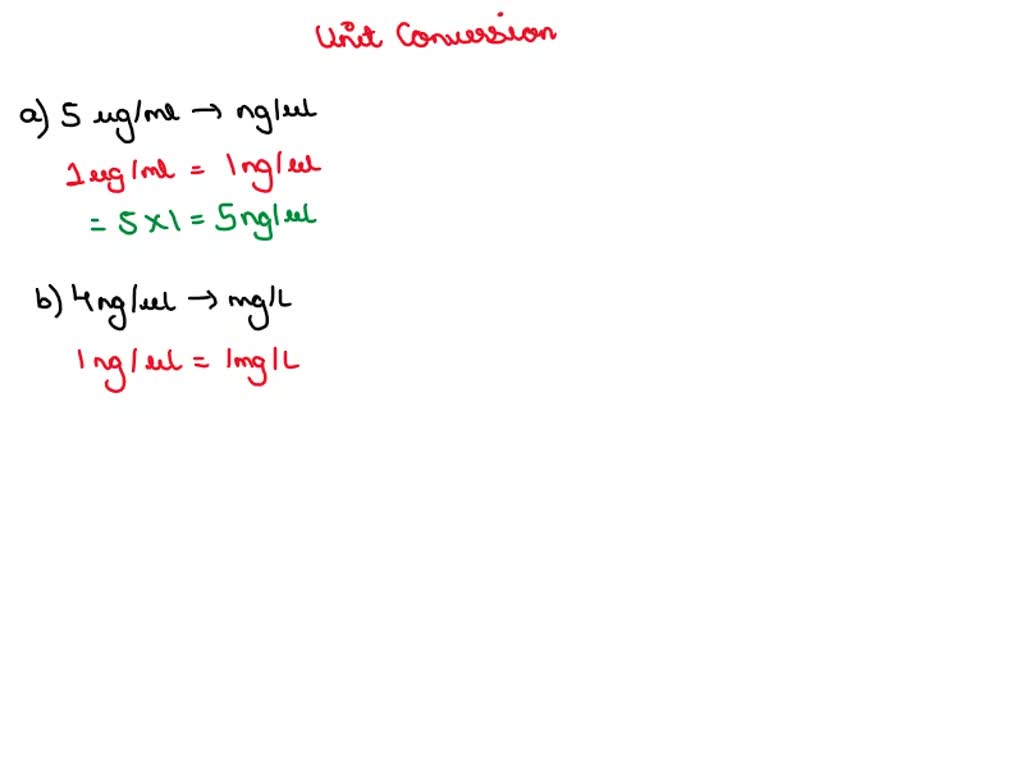 Unit Conversion
a) 5 ug/ml → ng/ul
1ug/ml = 1ng/ul
= 5×1 = 5ng/ul
b) 4ng/ul → mg/L
1ng/ul = 1mg/L